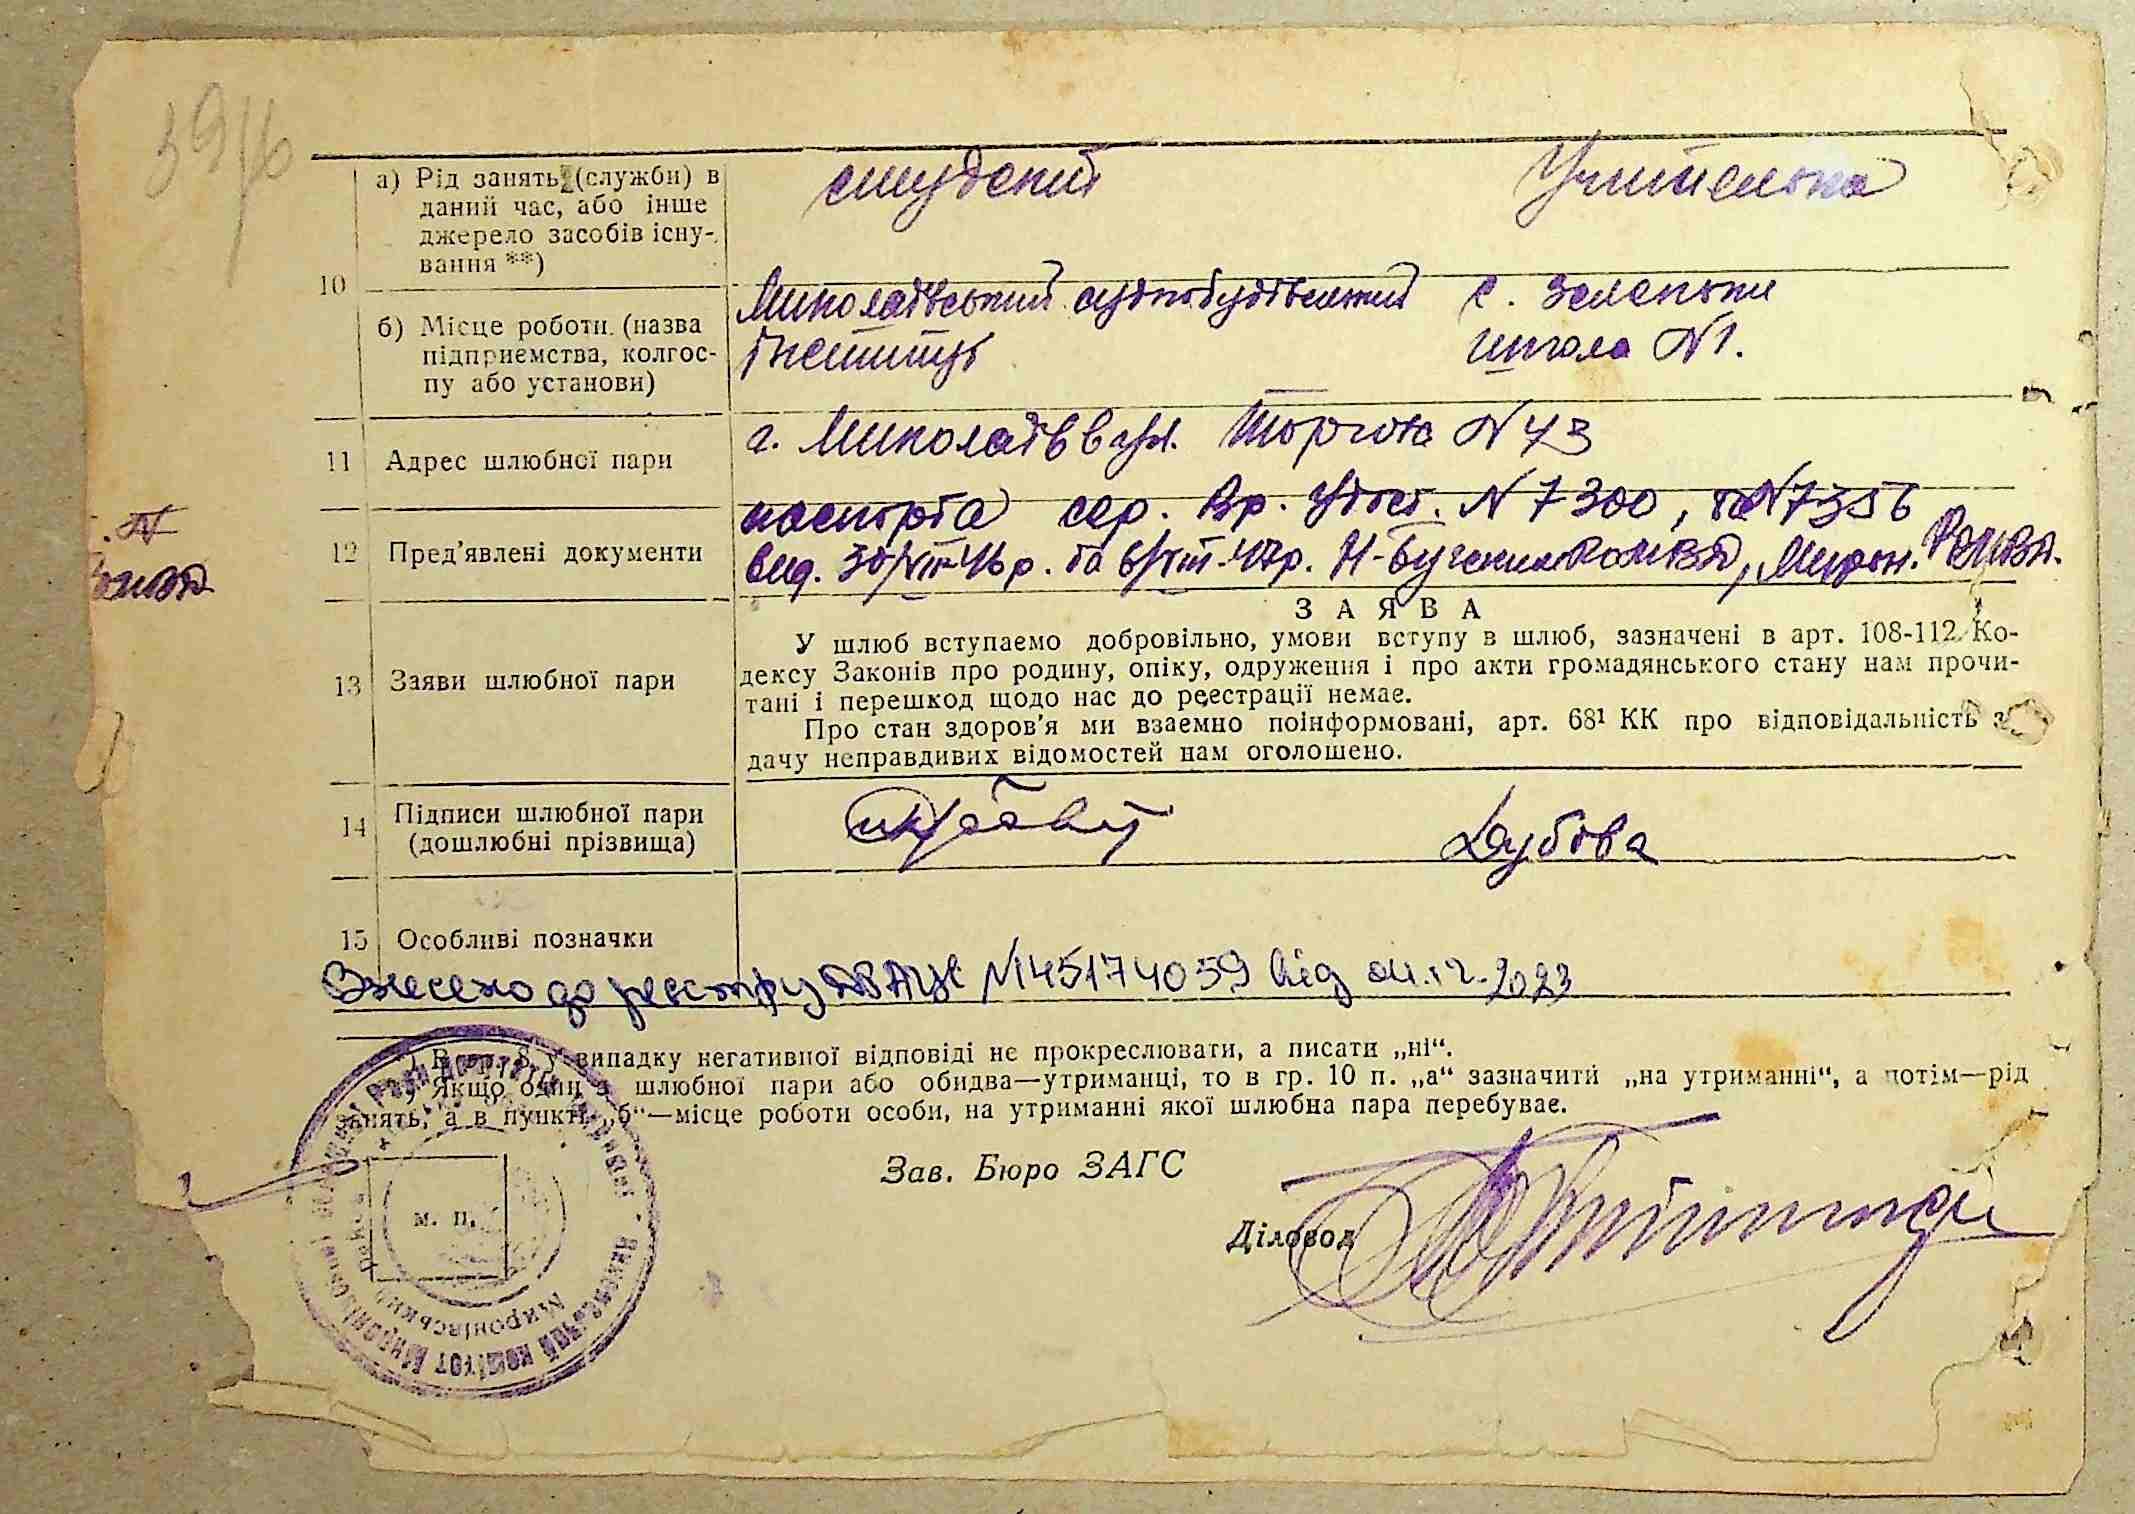 39/16
10
а) Рід занять (служби) в
даний час, або інше
джерело засобів існу-
вання **)
студент
Учителька
б) Місце роботи (назва
підприємства, колгос-
пу або установи)
Миколаївський суднобудівельний
інститут
с. Зеленьки
школа №1.
11 Адрес шлюбної пари
г. Миколаїв вул.
№ 43
12 Пред'явлені документи
паспорта сер. Вр. Удост. № 7300, та №7356
вид. 30/VIII-46р. та 6/VIII-47р. Н-Бугским РОМВД, Мирон. РОМВД.
13 Заяви шлюбної пари
ЗАЯВА
У шлюб вступаємо добровільно, умови вступу в шлюб, зазначені в арт. 108-112 Ко-
дексу Законів про родину, опіку, одруження і про акти громадянського стану нам прочи-
тані і перешкод щодо нас до реєстрації немає.
Про стан здоров'я ми взаємно поінформовані, арт. 68¹ КК про відповідальність з
дачу неправдивих відомостей нам оголошено.
14 Підписи шлюбної пари
(дошлюбні прізвища)
Дубова
15 Особливі позначки
Внесено до реєстру ДРАЦС №45174059 від 04.12.2023
*) В гр. 8 у випадку негативної відповіді не прокреслювати, а писати „ні“.
Якщо один з шлюбної пари або обидва—утриманці, то в гр. 10 п. „а“ зазначити „на утриманні“, а потім—рід
занять, а в пункті „б“—місце роботи особи, на утриманні якої шлюбна пара перебуває.
Зав. Бюро ЗАГС
м. п.
Діловод
Миронівський